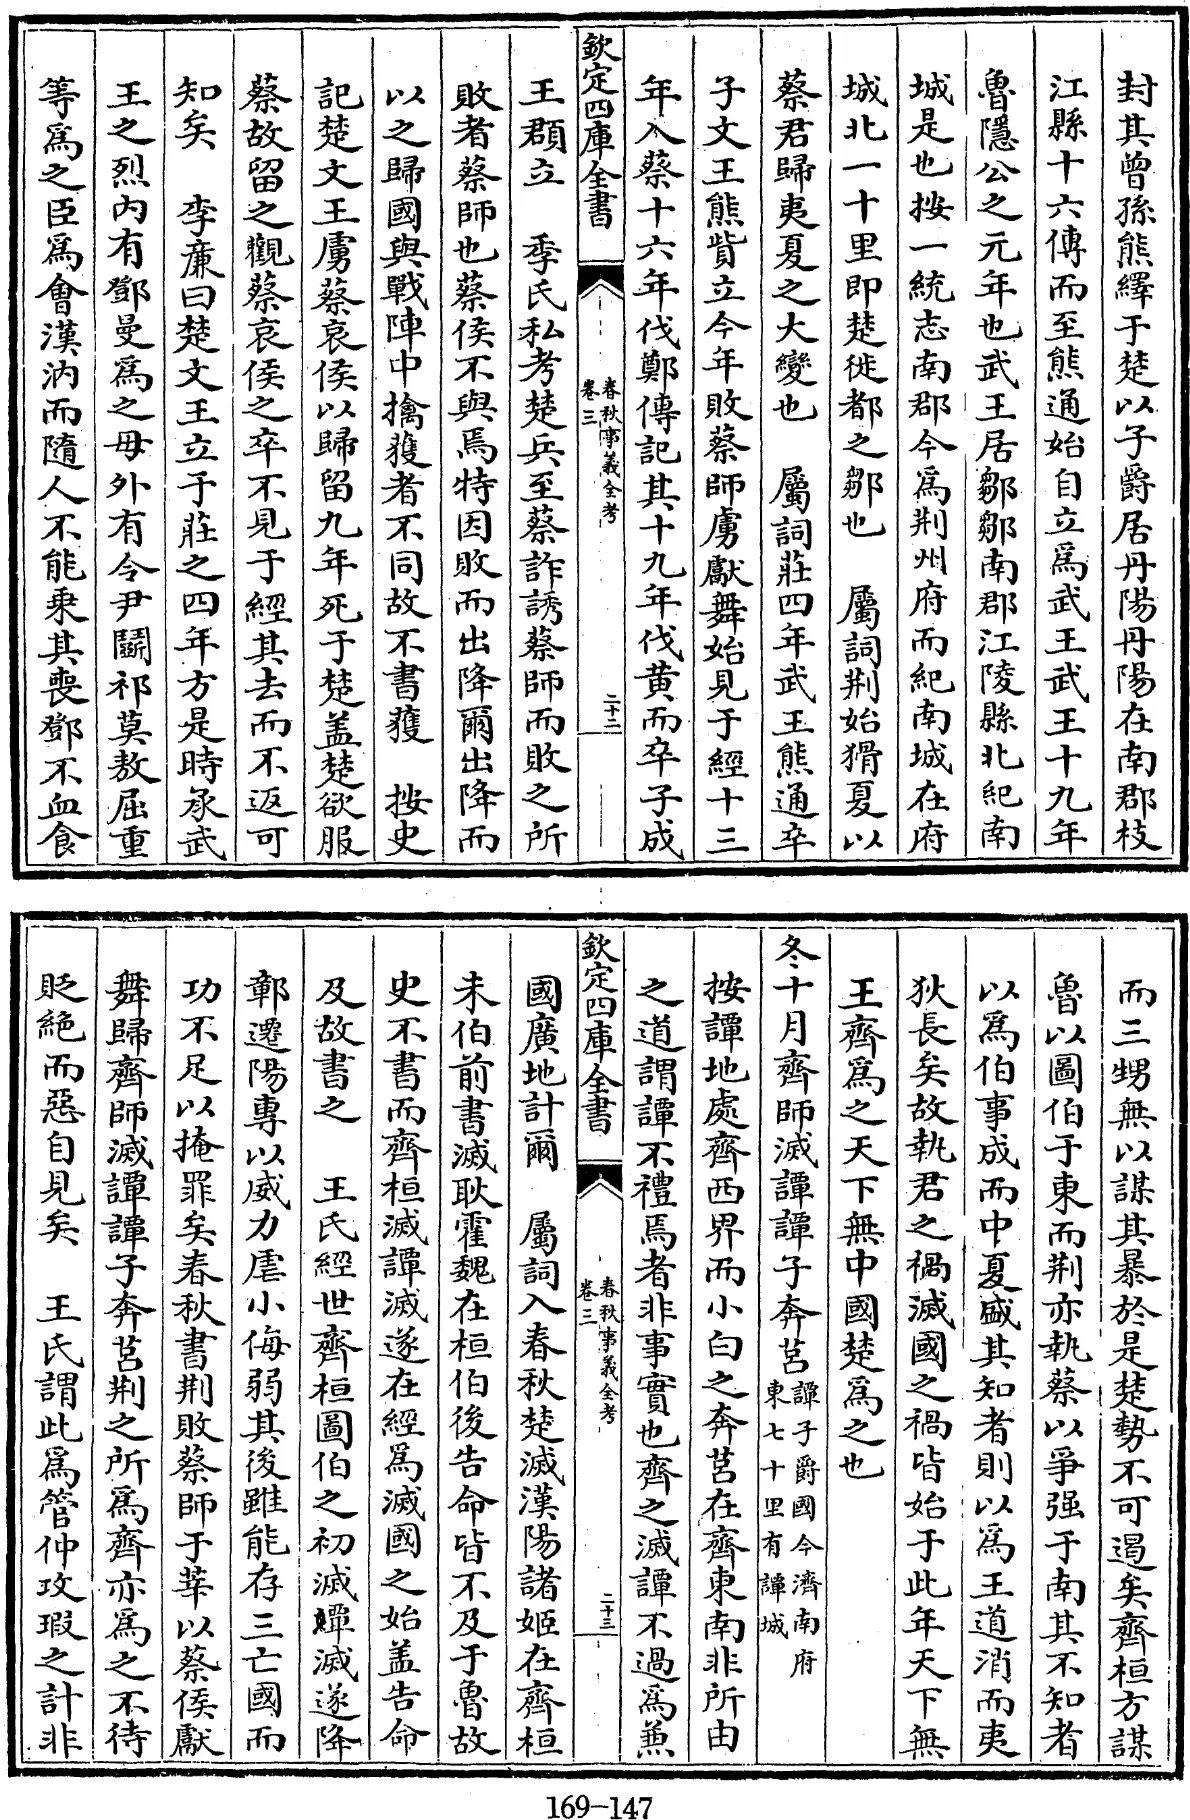 封其曾孫熊繹于楚以子爵居丹陽丹陽在南郡枝
江縣十六傳而至熊通始自立爲武王武王十九年
魯隱公之元年也武王居鄒鄒南郡江陵縣北紀南
城是也按一統志南郡今爲荆州府而紀南城在府
城北一十里即楚徙都之鄒也　屬詞荆始猾夏以
蔡君歸夷夏之大變也　屬詞莊四年武王熊通卒
子文王熊貲立今年敗蔡師虜獻舞始見于經十三
年入蔡十六年伐鄭傳記其十九年伐黄而卒子成
欽定四庫全書
春秋事義全考
卷三
二十二
王頵立　季氏私考楚兵至蔡詐誘蔡師而敗之所
敗者蔡師也蔡侯不與焉特因敗而出降爾出降而
以之歸國與戰陣中擒獲者不同故不書獲　按史
記楚文王虜蔡哀侯以歸留九年死于楚盖楚欲服
蔡故留之觀蔡哀侯之卒不見于經其去而不返可
知矣　李廉曰楚文王立于莊之四年方是時承武
王之烈内有鄧曼爲之母外有令尹鬭祁莫敖屈重
等爲之臣爲會漢汭而隨人不能乗其喪鄧不血食
而三甥無以謀其暴於是楚勢不可遏矣齊桓方謀
魯以圖伯于東而荆亦執蔡以爭强于南其不知者
以爲伯事成而中夏盛其知者則以爲王道消而夷
狄長矣故執君之禍滅國之禍皆始于此年天下無
王齊爲之天下無中國楚爲之也
冬十月齊師滅譚譚子奔莒譚子爵國今濟南府東七十里有譚城
按譚地處齊西界而小白之奔莒在齊東南非所由
之道謂譚不禮焉者非事實也齊之滅譚不過爲兼
欽定四庫全書
春秋事義全考
卷三
二十三
國廣地計爾　屬詞入春秋楚滅漢陽諸姬在齊桓
未伯前書滅耿霍魏在桓伯後告命皆不及于魯故
史不書而齊桓滅譚滅遂在經爲滅國之始盖告命
及故書之　王氏經世齊桓圖伯之初滅譚滅遂降
鄣遷陽專以威力虐小侮弱其後雖能存三亡國而
功不足以掩罪矣春秋書荆敗蔡師于莘以蔡侯獻
舞歸齊師滅譚譚子奔莒荆之所爲齊亦爲之不待
貶絶而惡自見矣　王氏謂此爲管仲攻瑕之計非
169-147